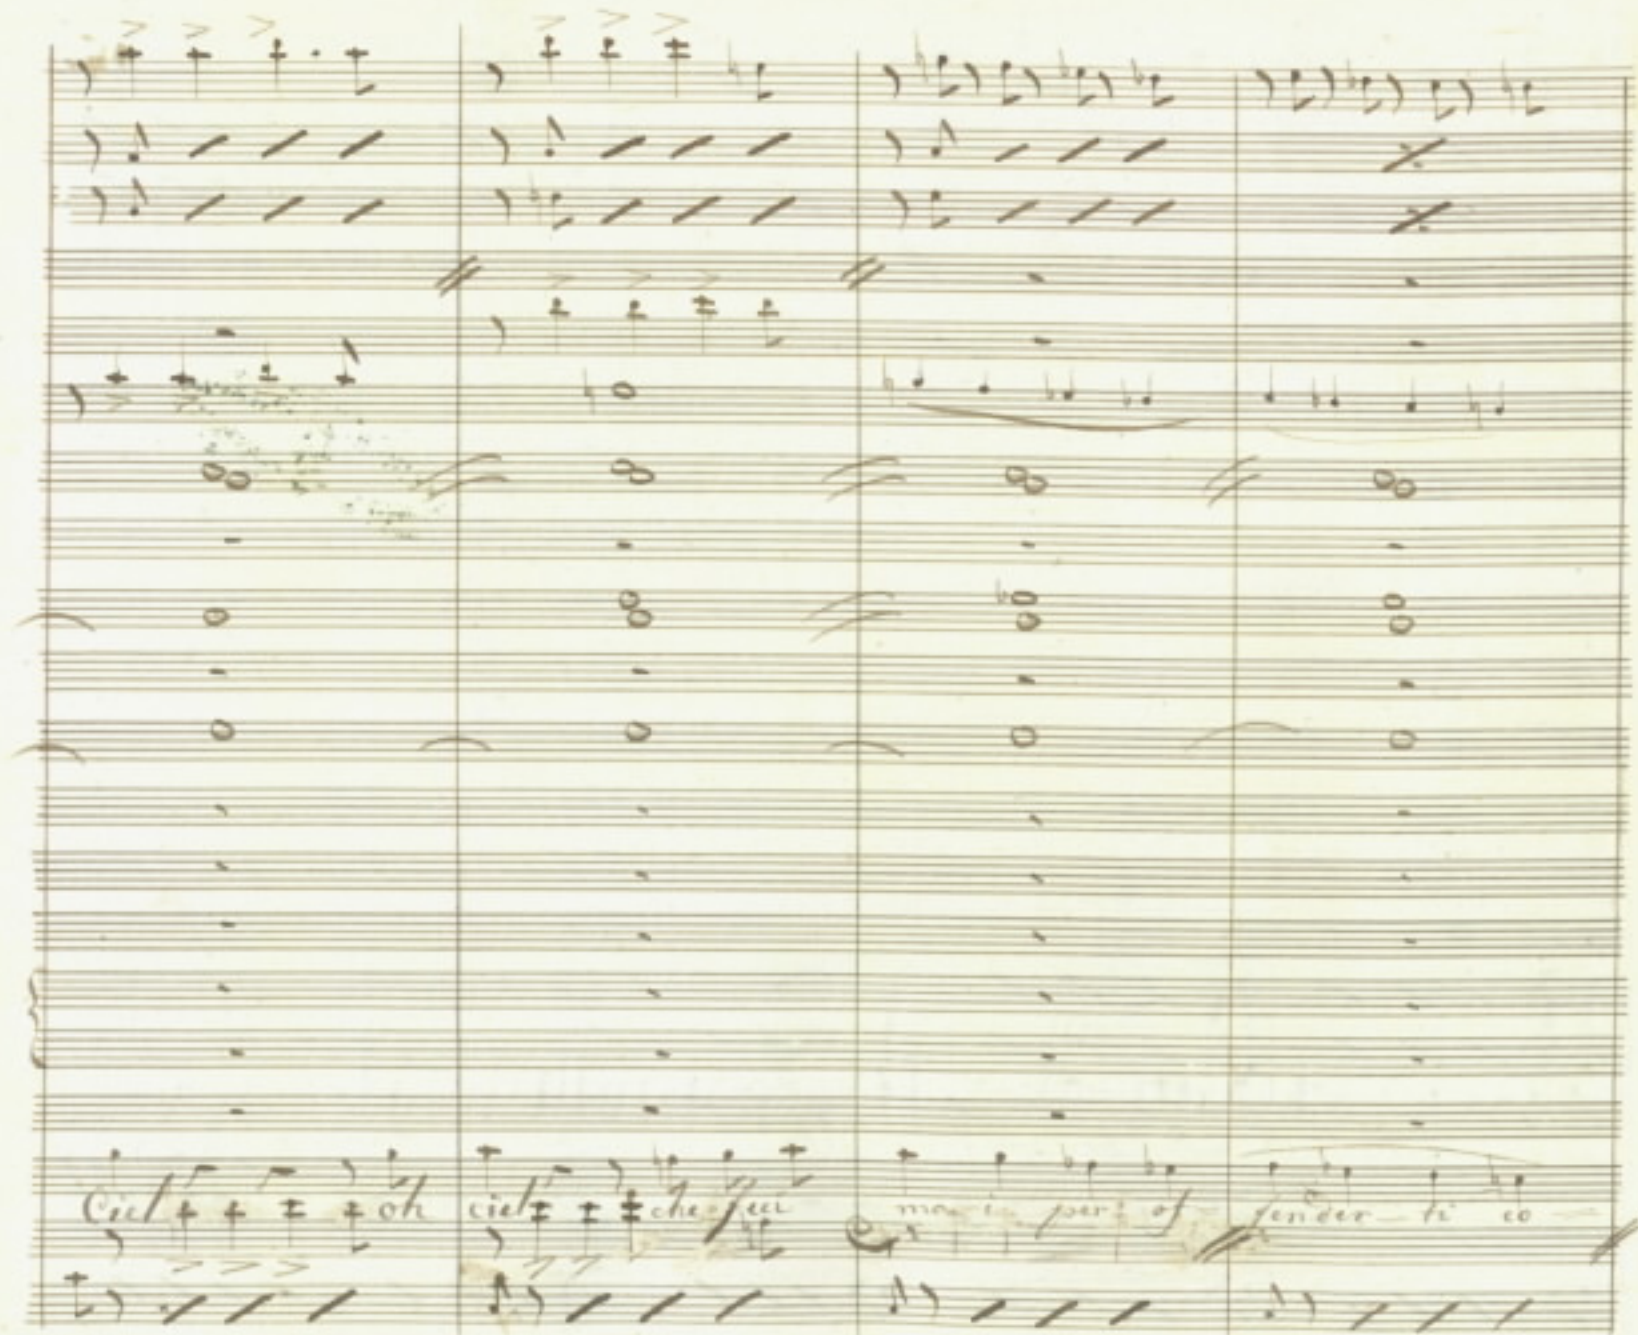 Ciel oh ciel che feci mai per of fender ti co